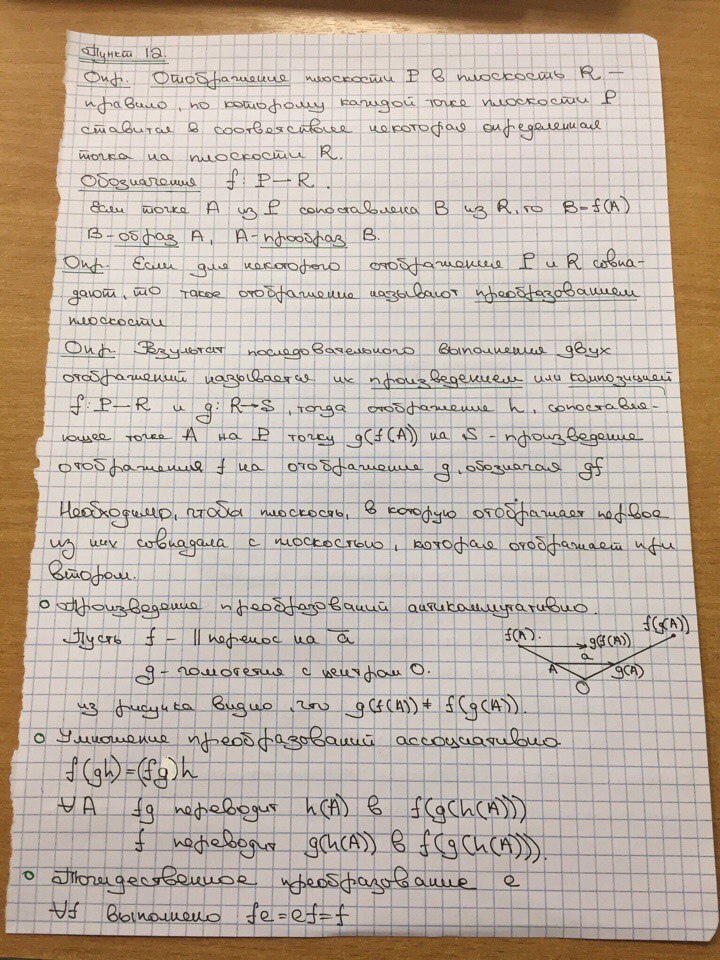 Пункт 12.
Опр. Отображение плоскости P в плоскость R —
правило, по которому каждой точке плоскости P
ставится в соответствие некоторая определенная
точка на плоскости R.
Обозначения f: P — R.
Если точке A из P сопоставлена B из R, то B=f(A)
B-образ A, A-прообраз B.
Опр. Если для некоторого отображения P и R совпа-
дают, то такое отображение называют преобразованием
плоскости
Опр. Результат последовательного выполнения двух
отображений называется их произведением или композицией
f: P — R и g: R → S, тогда отображение h, сопоставля-
ющее точке A на P точку g(f(A)) на S - произведение
отображения f на отображение g, обозначая gf
Необходимо, чтобы плоскость, в которую отображает первое
из них совпадала с плоскостью, которая отображает при
втором.
Произведение преобразований антикоммутативно.
Пусть f - || перенос на a
g - гомотетия с центром O.
f(A). g(f(A)) f(g(A))
a
A g(A)
O
из рисунка видно, что g(f(A)) ≠ f(g(A)).
Умножение преобразований ассоциативно
f(gh)=(fg)h
∀A fg переводит h(A) в f(g(h(A)))
f переводит g(h(A)) в f(g(h(A))).
Тождественное преобразование e
∀f выполнено fe=ef=f